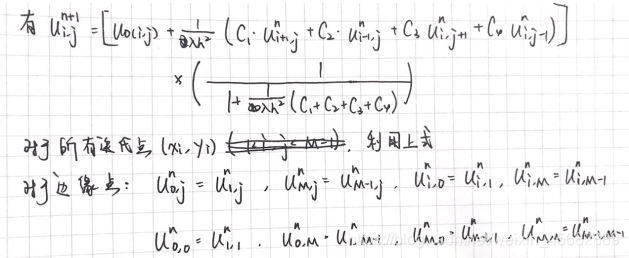 有 u_{i,j}^{n+1} = [ u_0(i,j) + \frac{1}{2λh^2} ( C_1 · u_{i+1,j}^n + C_2 · u_{i-1,j}^n + C_3 u_{i,j+1}^n + C_4 u_{i,j-1}^n ) ]
× ( \frac{1}{1 + \frac{1}{2λh^2} ( C_1 + C_2 + C_3 + C_4 )} )
对于所有迭代点 (x_i, y_i) , 利用上式
对于边缘点: u_{0,j}^n = u_{1,j}^n , u_{M,j}^n = u_{M-1,j}^n , u_{i,0}^n = u_{i,1}^n , u_{i,M}^n = u_{i,M-1}^n
u_{0,0}^n = u_{1,1}^n , u_{0,M}^n = u_{1,M-1}^n , u_{M,0}^n = u_{M-1,1}^n , u_{M,M}^n = u_{M-1,M-1}^n